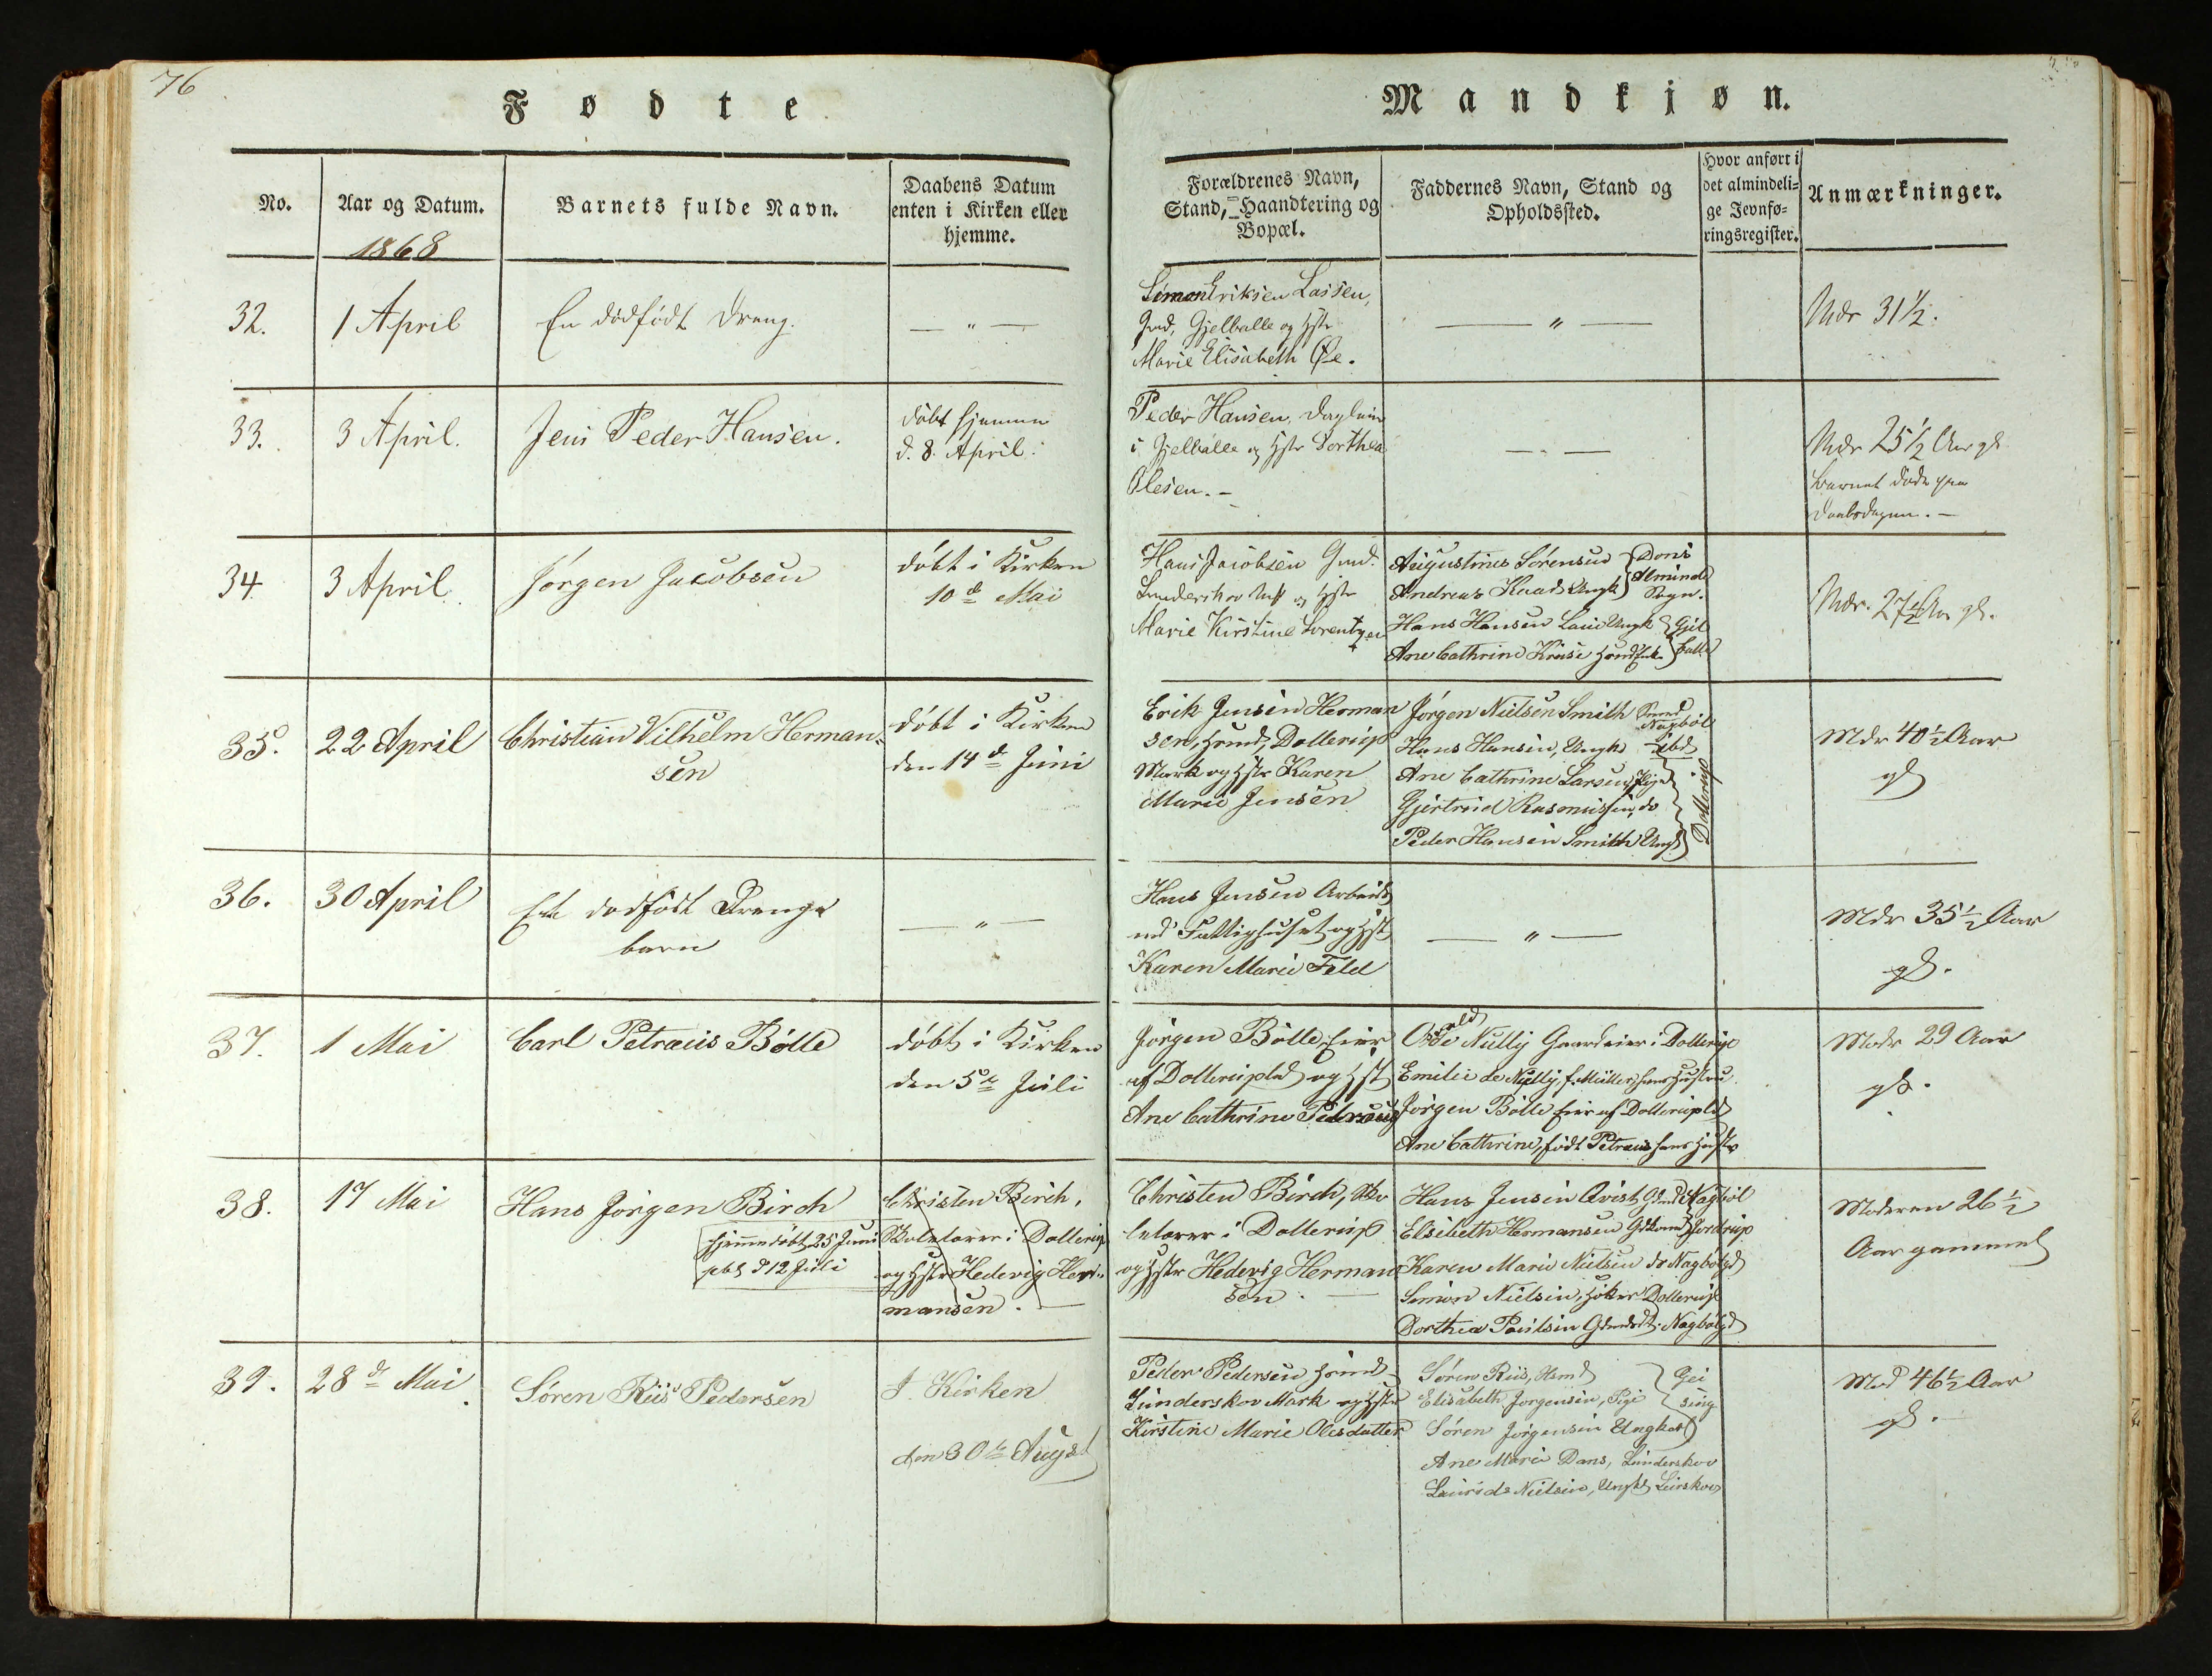 76
Fødte
Mandkjøn.
No.
Aar og Datum.
1868
Barnets fulde Navn.
Daabens Datum
enten i Kirken eller
hjemme.
Forældrenes Navn,
Stand, Haandtering og
Bopæl.
Faddernes Navn, Stand og
Opholdssted.
Hvor anført i
det almindeli-
ge Jevnfø-
ringsregister.
Anmærkninger.
32.
1 April
En dödfödt Dreng.
— " —
Simon Eriksen Lassen,
Gmd, Gjelballe og Hstr
Marie Elisabeth Øe.
— " —
Mdr 31 1/2.
33.
3 April.
Jens Peder Hansen.
döbt hjemme
d. 8. April.
Peder Hansen, Dagleier
i Gjelballe og Hstr Dorthea
Olesen. -
— " —
Mdr 25 1/2 Aar gl.
Barnet döde paa
Daabsdagen. -
34
3 April
Jörgen Jacobsen
döbt i Kirken
10 d Mai
Hans Jacobsen Gmd.
Lunderskov og Hstr
Marie Kirstine Lorentzen
Augustinus Sörensen } Dons
Andreas Knud Ungk } Almind
Sogn.
Hans Hansen Ungk } Gjel
Ane Cathrine Kruse } balle
Mdr. 27 1/2 Aar gl.
35.
22 April
Christian Vilhelm Herman-
sen
döbt i Kirken
den 14 d Juni
Erik Jensen Herman
sen, Hmd, Dollerup
Mark og Hstr Karen
Marie Jensen
Jörgen Nielsen Smith Smed
Nagböl
Hans Hansen, Ungk ibd
Ane Cathrine Larsen, Pige
Gjertrud Rasmussen, do
Peder Hansen Smith Ungk
Dollerup
Mdr 40 1/2 Aar
gl
36.
30 April
Et dödfödt Drenge
barn
— " —
Hans Jensen Arbeids
md Fattighuset og Hst
Karen Marie Feld
— " —
Mdr 35 1/2 Aar
gl.
37.
1 Mai
Carl Petræus Bölle
döbt i Kirken
den 5 te Juli
Jörgen Bölle, Eier
af Dollerupld og Hst
Ane Cathrine Petræus
Nully Gaardeier i Dollerup
Emilie de Nully, f. Müller, hans Hustru
Jörgen Bölle Eier af Dollerupld
Ane Cathrine, födt Petræus hans Hustr
Modr 29 Aar
gl.
38.
17 Mai
Hans Jörgen Birch
hjemmedöbt 25 Juni
pbl d 12 Juli
Christen Birch,
Skolelærer i Dollerup
og Hstr Hedevig Her-
mansen. —
Christen Birch, Sko
lelærer i Dollerup
og Hstr Hedevig Herman
sen. —
Hans Jensen Qvist, Gdmd Nagböl
Elsebeth Hermansen Gdkone Hjordrup
Karen Marie Nielsen do Nagböl
Simon Nielsen, Höker Dollerup
Dorthea Poulsen Nagböl
Moderen 26 1/2
Aar gammel
39.
28 d Mai
Sören Riis Pedersen
I Kirken
den 30 te Augst
Peder Pedersen Hmd
Lunderskov Mark og Hstr
Kirstine Marie Olesdatter
Sören Riis, Hmd } Gei
Elisabeth Jörgensen, Pige } sing
Sören Jörgensen Ungkarl
Ane Marie Dans, Lunderskov
Laurids Nielsen, Ungkl Leirskov
Mod 46 1/2 Aar
gl. -